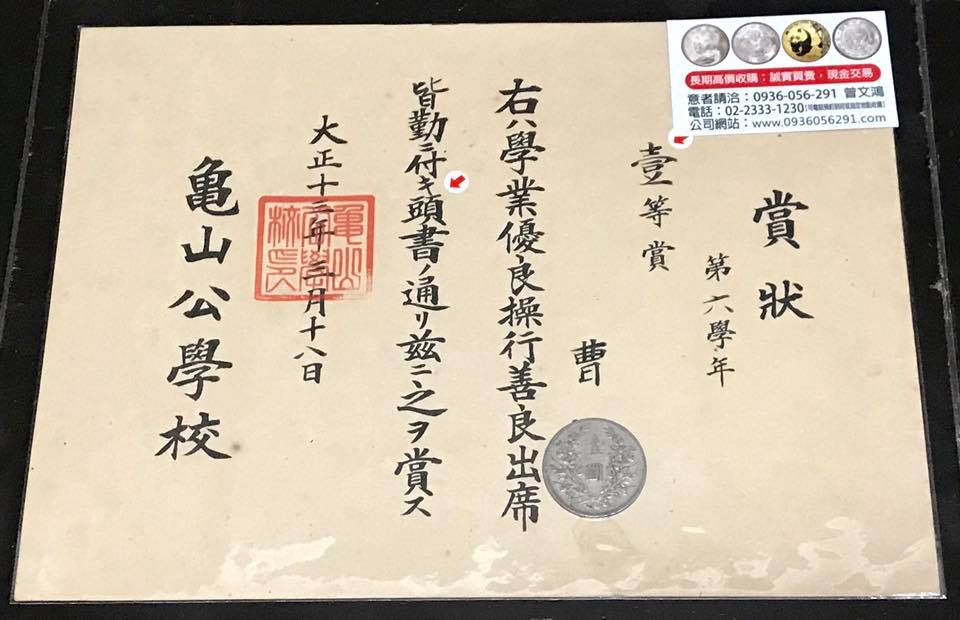 長期高價收購：誠實買賣，現金交易
意者請洽：0936-056-291 曾文鴻
電話：02-2333-1230【可電話預約到府或指定地點收購】
公司網站：www.0936056291.com
賞狀
第六學年
壹等賞
曹
壹圓
右ハ學業優良操行善良出席
皆勤ニ付キ頭書ノ通リ茲ニ之ヲ賞ス
大正十三年三月十八日
亀山公學校